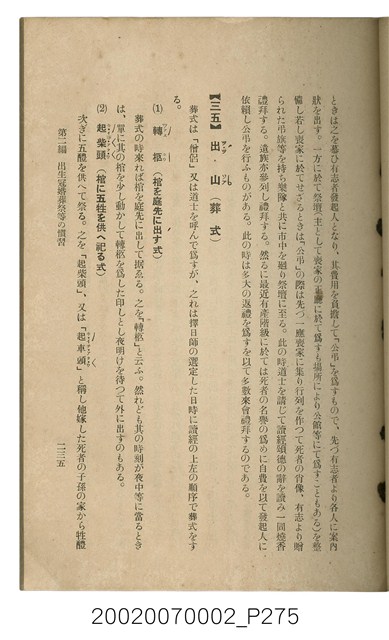 ときは之を慕ひ有志者發起人となり、其費用を負擔して「公弔」を爲すもので、先づ有志者より各人に案內
狀を出す。一方に於て祭壇(主として喪家の重廳に於て爲すも場所により公館等にて爲すこともある)を整
備し若し喪家に於てせざるときは「公弔」の際は先づ一應喪家に集り行列を作つて死者の肖像、有志より贈
られた弔旗等を持ち樂隊と共に市中を廻り祭壇に至る。此の時道士を請じて讀經頌德の辭を讀み一同燒香
禮拜する。遺族亦參列し禮拜する。然るに最近有產階級に於ては死者の名譽の爲めに自費を以て發起人に
依賴し公弔を行ふものがある。此の時は多大の返禮を爲すを以て多數來會禮拜するのである。
【三五】 出 山 (葬 式)
葬式は「僧侶」又は道士を呼んで爲すが、之れは擇日師の選定した日時に讀經の上左の順序で葬式をす
る。
(1) 轉 柩 (棺を庭先に出す式)
葬式の時來れば棺を庭先に出して据ゑる。之を「轉柩」と云ふ。然れども其の時刻が夜中等に當るとき
は、單に其の棺を少し動かして轉柩を爲した印しとし夜明けを待つて外に出すのもある。
(2) 起柴頭 (棺に五牲を供へ祀る式)
次ぎに五醴を供へて祭る。之を「起柴頭」、又は「起車頭」と稱し他嫁した死者の子孫の家から牲醴
第二編 出生冠婚葬祭等の慣習
二三五
20020070002_P275